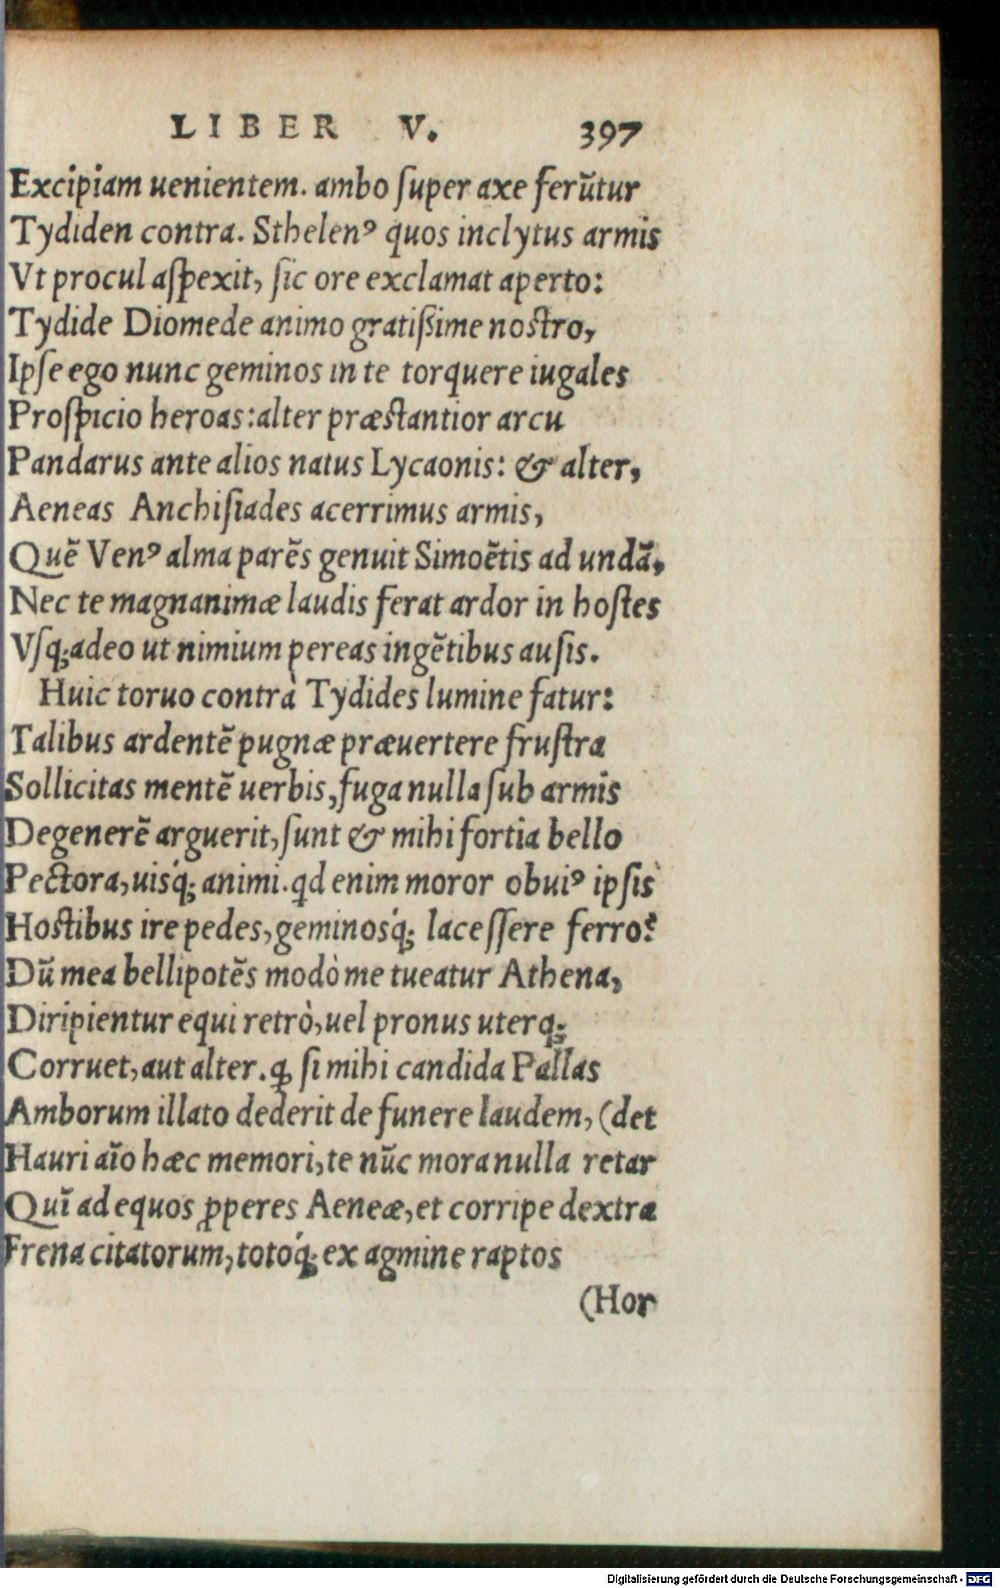 LIBER V. 397
Excipiam uenientem. ambo ſuper axe ferũtur
Tydiden contra. Sthelenꝰ quos inclytus armis
Vt procul aſpexit, ſic ore exclamat aperto:
Tydide Diomede animo gratiſsime noſtro,
Ipſe ego nunc geminos in te torquere iugales
Proſpicio heroas:alter præſtantior arcu
Pandarus ante alios natus Lycaonis: & alter,
Aeneas Anchiſiades acerrimus armis,
Quẽ Venꝰ alma parẽs genuit Simoẽtis ad undã,
Nec te magnanimæ laudis ferat ardor in hoſtes
Vſq;adeo ut nimium pereas ingẽtibus auſis.
Huic toruo contrà Tydides lumine fatur:
Talibus ardentẽ pugnæ præuertere fruſtra
Sollicitas mentẽ uerbis,fuga nulla ſub armis
Degenerẽ arguerit,ſunt & mihi fortia bello
Pectora,uisq́; animi.qd enim moror obuiꝰ ipſis
Hoſtibus ire pedes,geminosq́; laceſſere ferro?
Dũ mea bellipotẽs modò me tueatur Athena,
Diripientur equi retrò,uel pronus uterq;
Corruet,aut alter.ꝙ ſi mihi candida Pallas
Amborum illato dederit de funere laudem, (det
Hauri aĩo hæc memori,te nũc mora nulla retar
Quĩ ad equos ꝓperes Aeneæ,et corripe dextra
Frena citatorum,totoq́; ex agmine raptos
(Hor
Digitalisierung gefördert durch die Deutsche Forschungsgemeinschaft - DFG